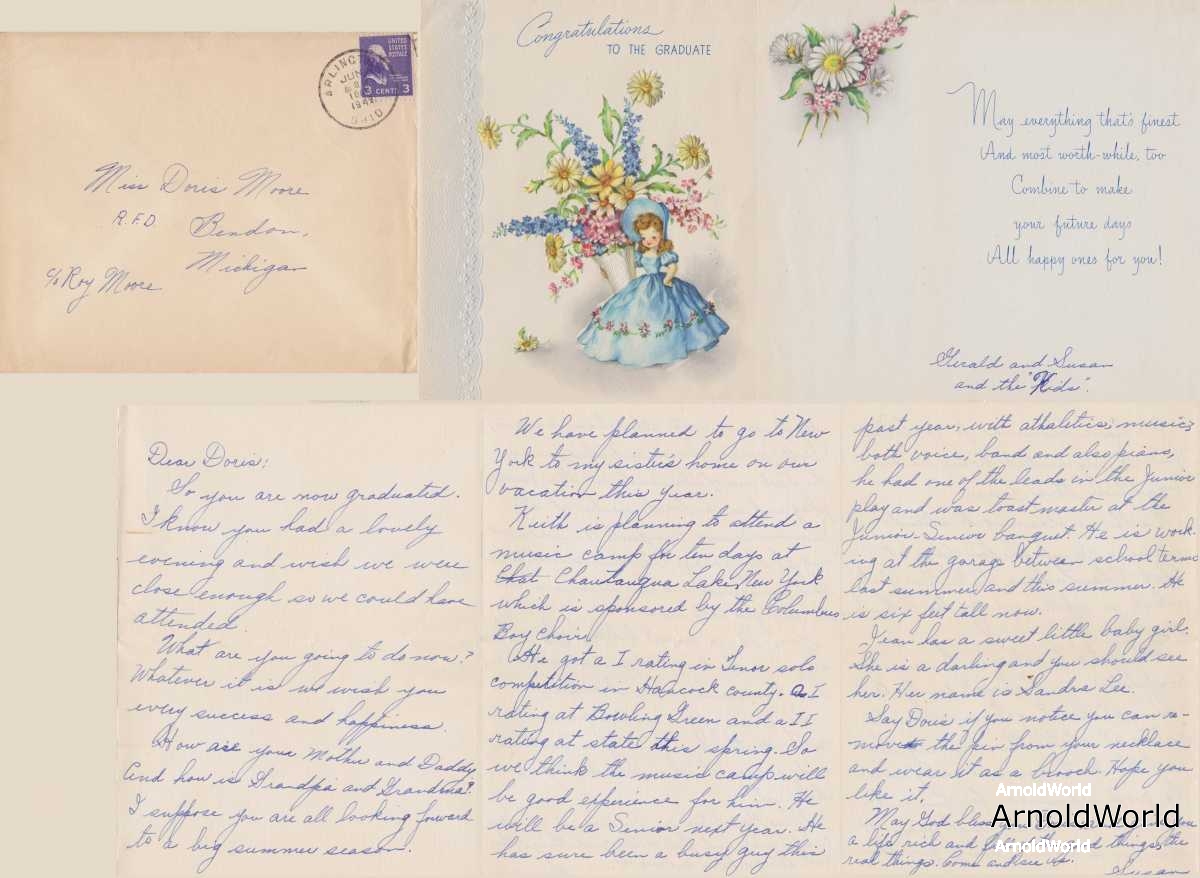 UNITED
STATES
POSTAGE
3 CENTS 3
ARLINGTON
JUN
OHIO
Miss Doris Moore
R.F.D. Bendon,
Michigan
c/o Roy Moore
Congratulations
TO THE GRADUATE
May everything that's finest
And most worth-while, too
Combine to make
your future days
All happy ones for you!
Gerald and Susan
and the "Kids".
Dear Doris:
So you are now graduated.
I know you had a lovely
evening and wish we were
close enough so we could have
attended.
What are you going to do now?
Whatever it is we wish you
every success and happiness.
How are your Mother and Daddy
and how is Grandpa and Grandma?
I suppose you are all looking forward
to a big summer season.
We have planned to go to New
York to my sister's home on our
vacation this year.
Keith is planning to attend a
music camp for ten days at
Chautauqua Lake, New York
which is sponsored by the Columbus
Boy Choir.
He got a I rating in Tenor solo
competition in Hancock county. a I
rating at Bowling Green and a II
rating at state this spring. So
we think the music camp will
be good experience for him. He
will be a Senior next year. He
has sure been a busy guy this
past year, with athaletics, music;
both voice, band and also piano,
he had one of the leads in the Junior
play and was toast master at the
Junior-Senior banquet. He is work-
ing at the garage between school terms
last summer and this summer. He
is six feet tall now.
Jean has a sweet little baby girl.
She is a darling and you should see
her. Her name is Sandra Lee.
Say Doris if you notice you can re-
move the pin from your necklace
and wear it as a brooch. Hope you
like it.
May God bless you
a life rich and full good things, the
real things. Come and see us.
Susan
ArnoldWorld
ArnoldWorld
ArnoldWorld